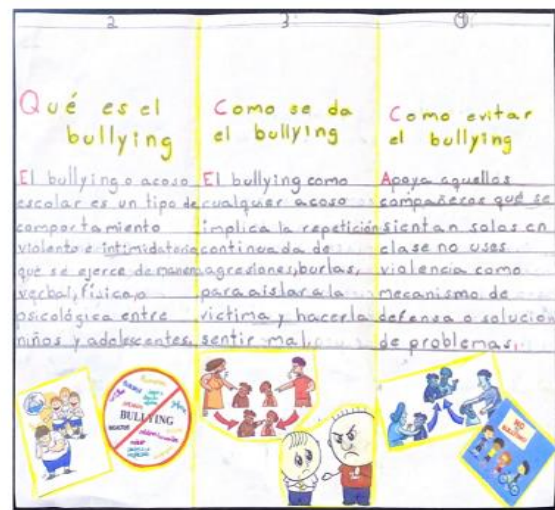 2
Qué es el
bullying
El bullying o acoso
escolar es un tipo de
comportamiento
violento e intimidatorio
que se ejerce de manera
verbal, física, o
psicológica entre
niños y adolescentes.
BULLYING
3
Como se da
el bullying
El bullying como
cualquier acoso
implica la repetición
continuada de
agresiones, burlas,
para aislar a la
victima y hacerla
sentir mal.
4
Como evitar
el bullying
Apoya aquellos
compañeros que se
sientan solos en
clase no uses
violencia como
mecanismo de
defensa o solución
de problemas.
NO
BULLYING